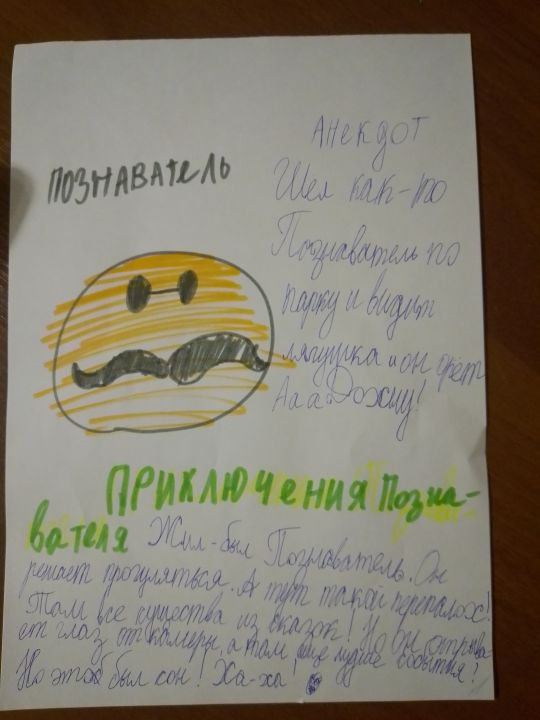 ПОЗНАВАТЕЛЬ
Анекдот
Шел как-то
Познаватель по
парку и видит
лягушка и он орет
Аааа
ПРИКЛЮЧЕНИЯ Позна-
вателя Жил-был Познаватель. Он
решает прогуляться. А тут такой переполох!
Там все существа из сказок! Но он
от глаз от камеры, а там еще события!
Но этоб был сон! Ха-ха!